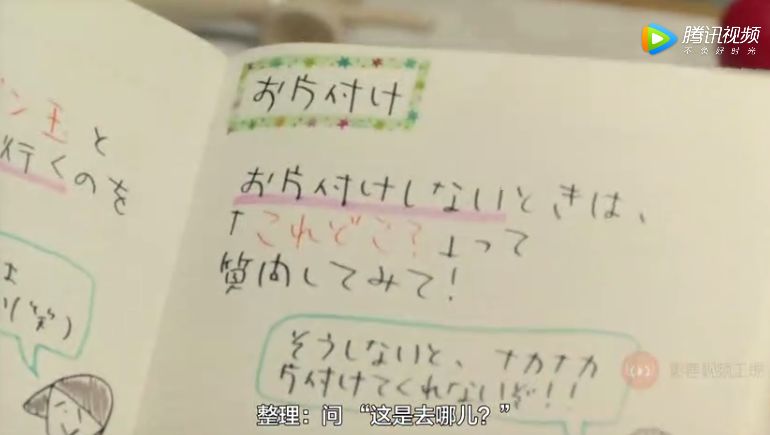 腾讯视频
不负好时光
ン玉と
行くのを
お片付け
お片付けしないときは、
「これどこ?」って
質内してみて!
そうしないと、ナカナカ
片付けてくれないぞ!!
整理：问 “这是去哪儿？”